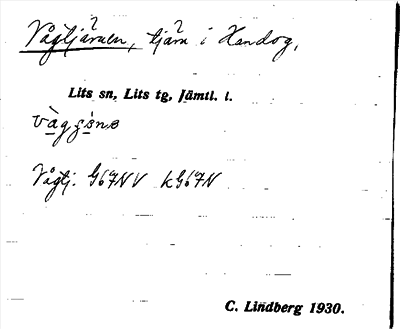 Vågtjärnen, tjärn i Handog,
Lits sn, Lits tg, Jämtl. l.
Vågtj. G67NV kG67N
C. Lindberg 1930.